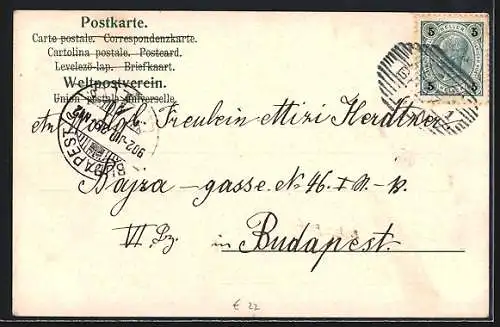 Postkarte.
Carte postale. Correspondenzkarte.
Cartolina postale. Postcard.
Levelező-lap. Briefkaart.
Weltpostverein.
Union postale universelle.
Fräulein Mizi Herdtner
Bajza-gasse. No 46. I
VI. Bz. in Budapest.
5 5
5 5
BUDAPEST
902
€ 22